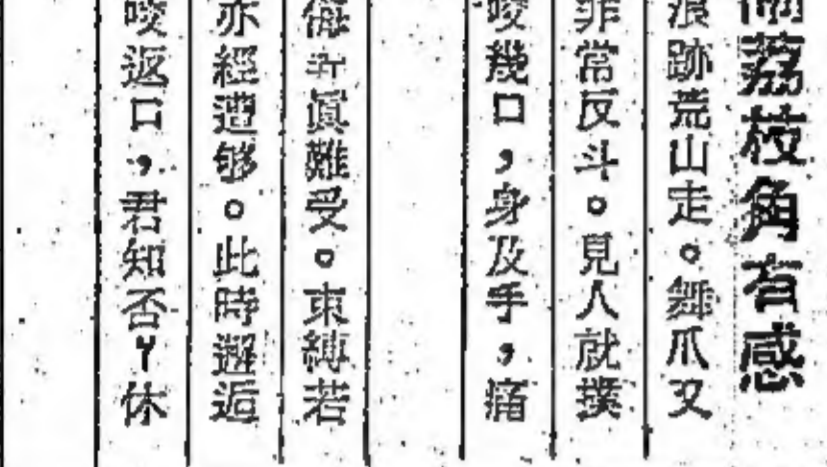 荔枝角有感
浪跡荒山走。舞爪又
非常反斗。見人就撲
咬幾口，身及手，痛
眞難受。束縛若
亦經遭够。此時邂逅
咬返口，君知否？休